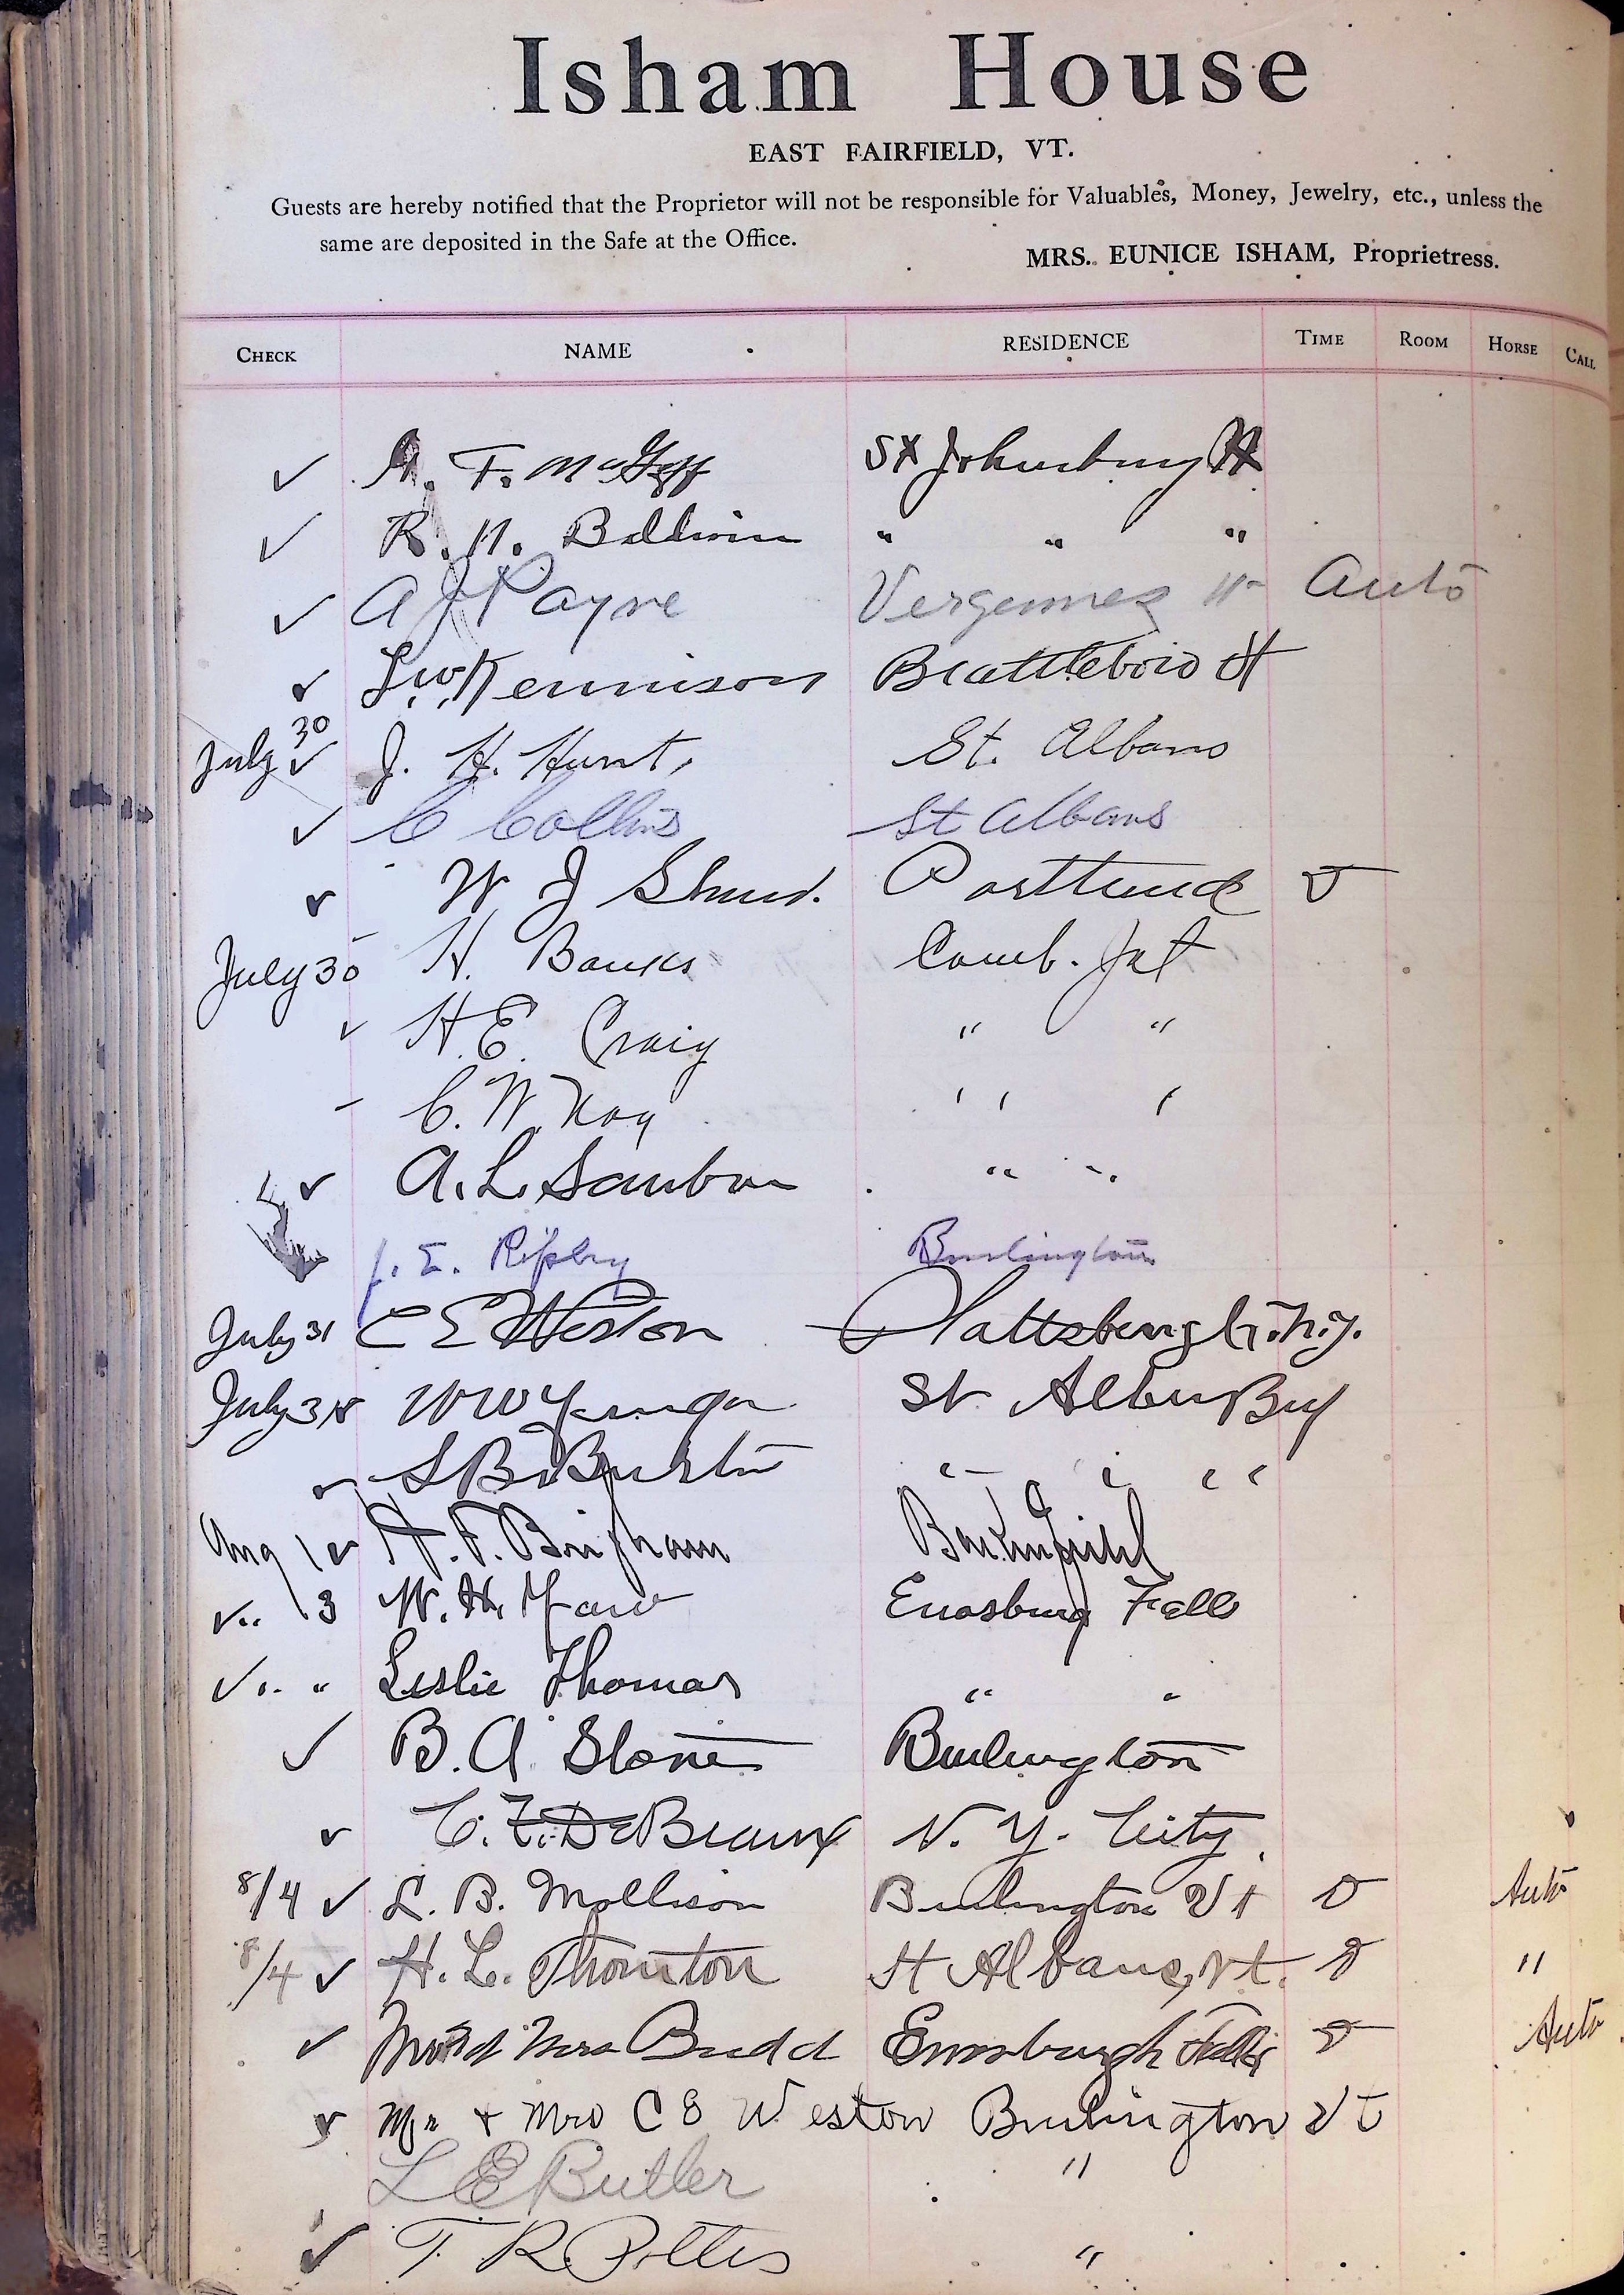 Isham House
EAST FAIRFIELD, VT.
Guests are hereby notified that the Proprietor will not be responsible for Valuables, Money, Jewelry, etc., unless the
same are deposited in the Safe at the Office.
MRS. EUNICE ISHAM, Proprietress.
CHECK NAME RESIDENCE TIME ROOM HORSE CALL
✓ A. F. St Johnsbury Vt
✓ R. H. Baldwin " " "
✓ A J Payne Vergennes Vt Auto
✓ L.W. Kennison Brattleboro Vt
July 30 ✓ J. H. Hunt, St. Albans
✓ C Collins St Albans
✓ W J Portland D
July 30 H. Banks Camb. Jct
✓ H. E. Craig " "
C. W. " "
✓ A. L. Sanborn " "
J. E. Ripley Burlington
July 31 C E Weston Plattsburgh. N.Y.
July 31 W W St Alban Bay
✓ S B " " "
Aug 1 ✓ H. F. Brigham Bakersfield
✓ " 3 W. H. Yaw Enosburg Falls
✓ " " Leslie Thomas " "
✓ B. A. Stone Burlington
✓ C. F. N. Y. City
8/4 ✓ L. B. Mollison Burlington Vt D Auto
8/4 ✓ H. L. Thornton St Albans, Vt. D "
✓ Mr and Mrs Budd Enosburgh Falls D Auto
✓ Mr + Mrs C E Weston Burlington Vt
L E Butler "
✓ T. R. "